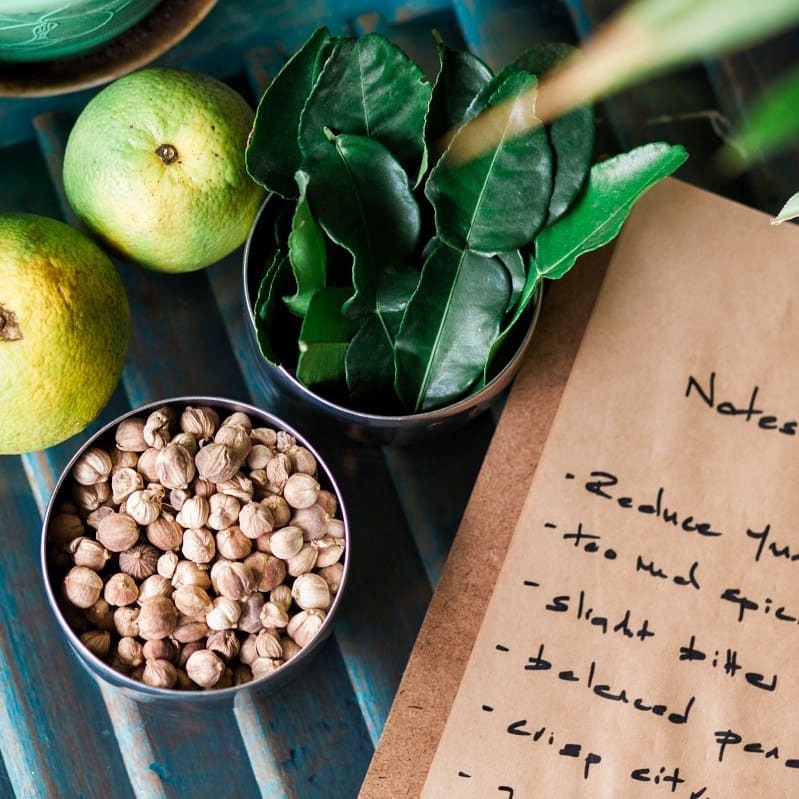 Notes
- Reduce
- too mud spic
- slight bitter
- balanced
- crisp citr
-